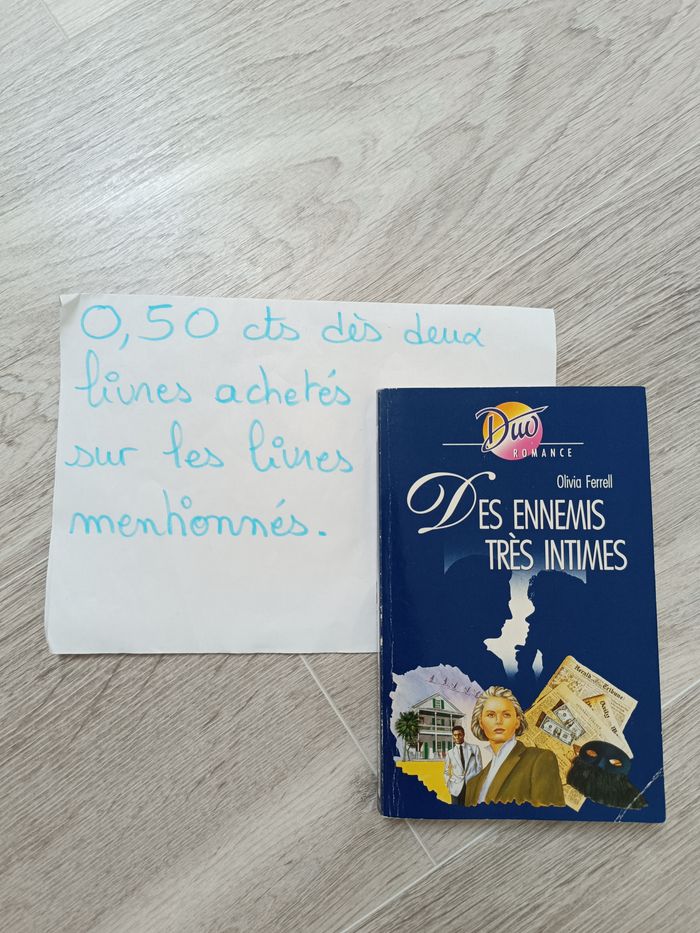 0,50 cts dès deux
livres achetés
sur les livres
mentionnés.
Duo
ROMANCE
Olivia Ferrell
DES ENNEMIS
TRÈS INTIMES
Herald Tribune
Daily